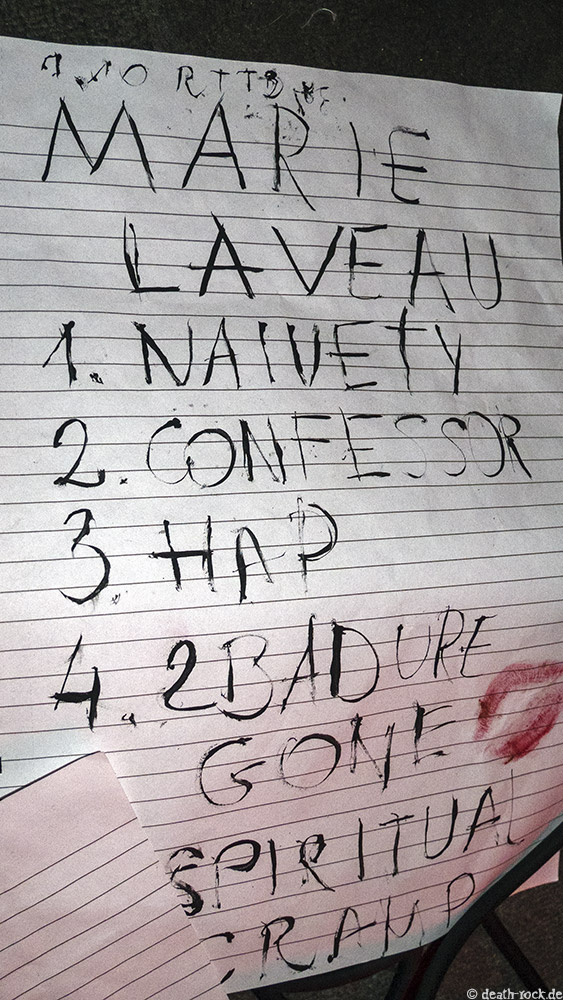 MARIE
LAVEAU
1. NAIVETY
2. CONFESSOR
3. HAP
4. 2BAD URE
GONE
SPIRITUAL
CRAMP
© death-rock.de